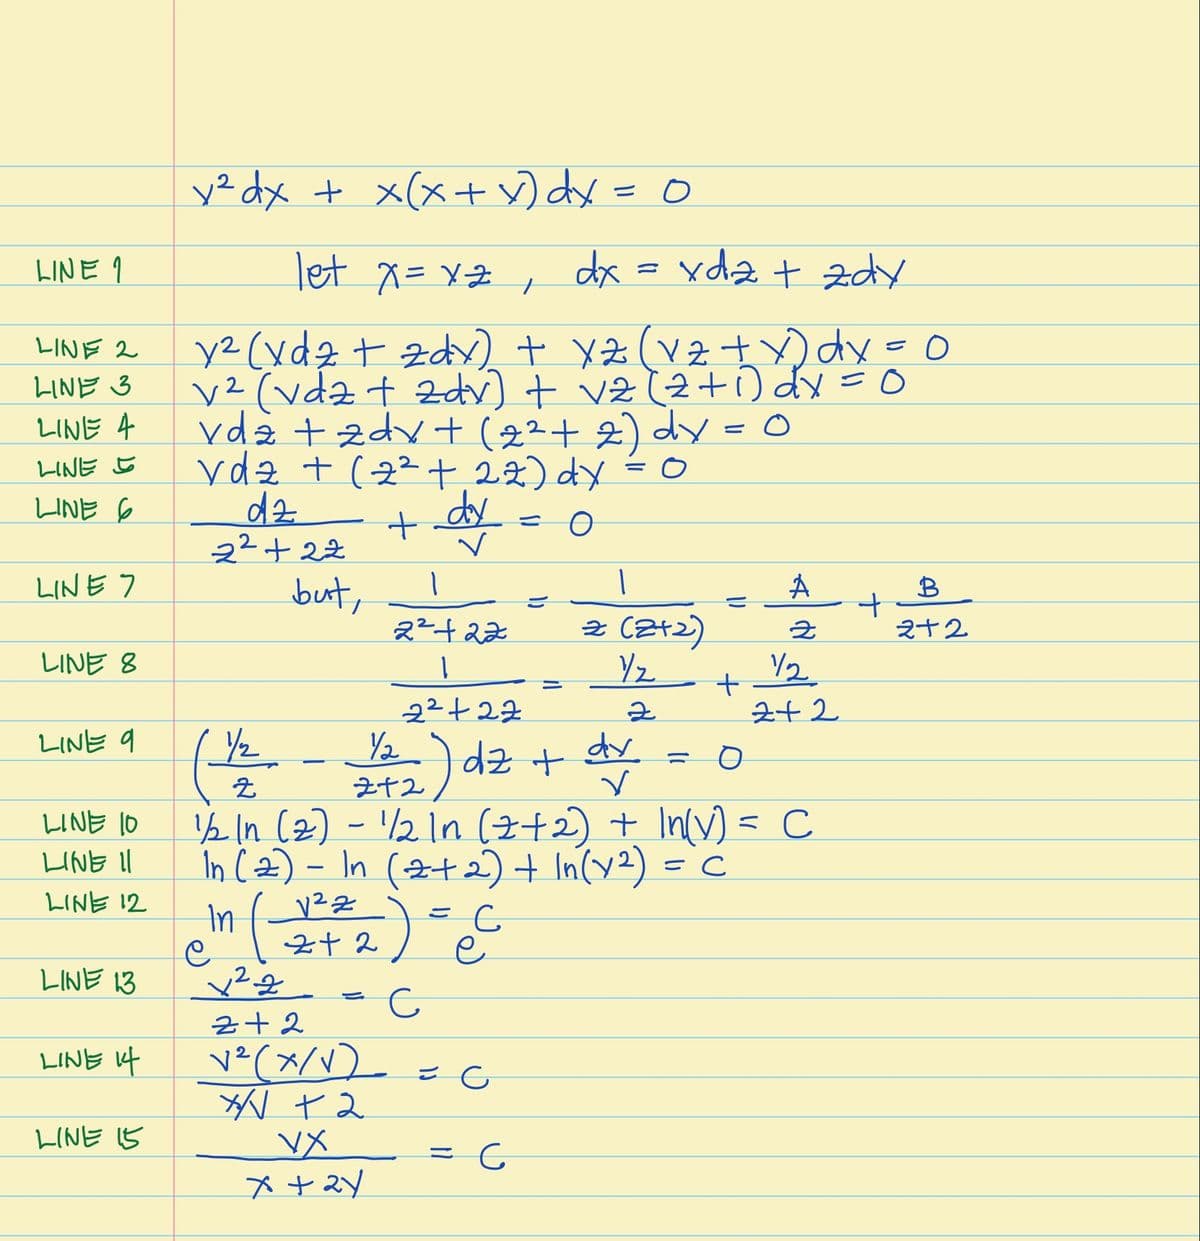 y² dx + x(x + y) dy = 0
LINE 1 let x = yz , dx = ydz + zdy
LINE 2 y² (ydz + zdy) + yz (yz + y) dy = 0
LINE 3 y² (ydz + zdy) + yz (z+1) dy = 0
LINE 4 ydz + zdy + (z² + z) dy = 0
LINE 5 ydz + (z² + 2z) dy = 0
LINE 6 dz / (z² + 2z) + dy / y = 0
LINE 7 but, 1 / (z² + 2z) = 1 / (z (z+2)) = A / z + B / (z+2)
LINE 8 1 / (z² + 2z) = 1/2 / z + 1/2 / (z+2)
LINE 9 (1/2 / z - 1/2 / (z+2)) dz + dy / y = 0
LINE 10 1/2 ln (z) - 1/2 ln (z+2) + ln(y) = C
LINE 11 ln (z) - ln (z+2) + ln(y²) = C
LINE 12 e^ln (y²z / (z+2)) = e^C
LINE 13 y²z / (z+2) = C
LINE 14 y² (x/y) / (x/y + 2) = C
LINE 15 yx / (x + 2y) = C